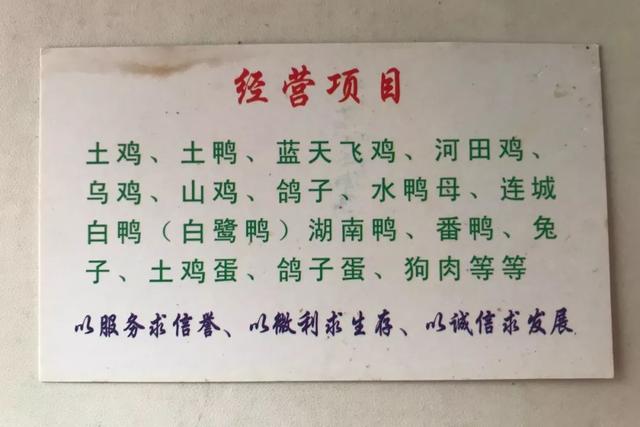 经营项目
土鸡、土鸭、蓝天飞鸡、河田鸡、
乌鸡、山鸡、鸽子、水鸭母、连城
白鸭（白鹭鸭）湖南鸭、番鸭、兔
子、土鸡蛋、鸽子蛋、狗肉等等
以服务求信誉、以微利求生存、以诚信求发展